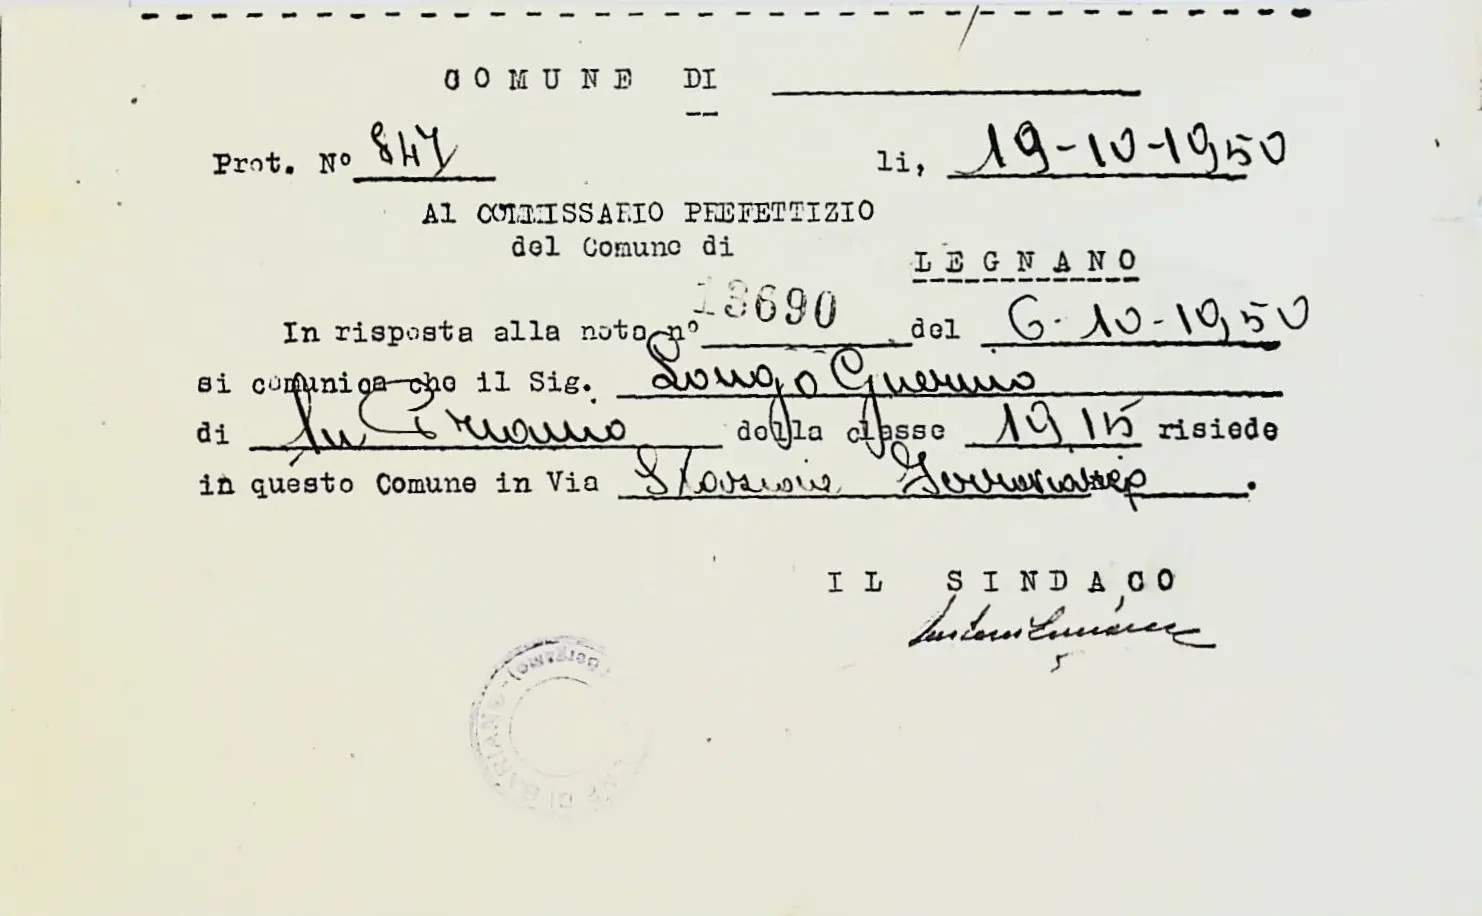 COMUNE DI
Prot. N° 847 li, 19-10-1950
Al COMMISSARIO PREFETTIZIO
del Comune di
LEGNANO
In risposta alla nota n° 13690 del 6-10-1950
si comunica che il Sig. Longo Guerino
di fu Priamo della classe 1915 risiede
in questo Comune in Via Stazione Ferroviaria.
IL SINDACO
DI BARIANO (BERGAMO)